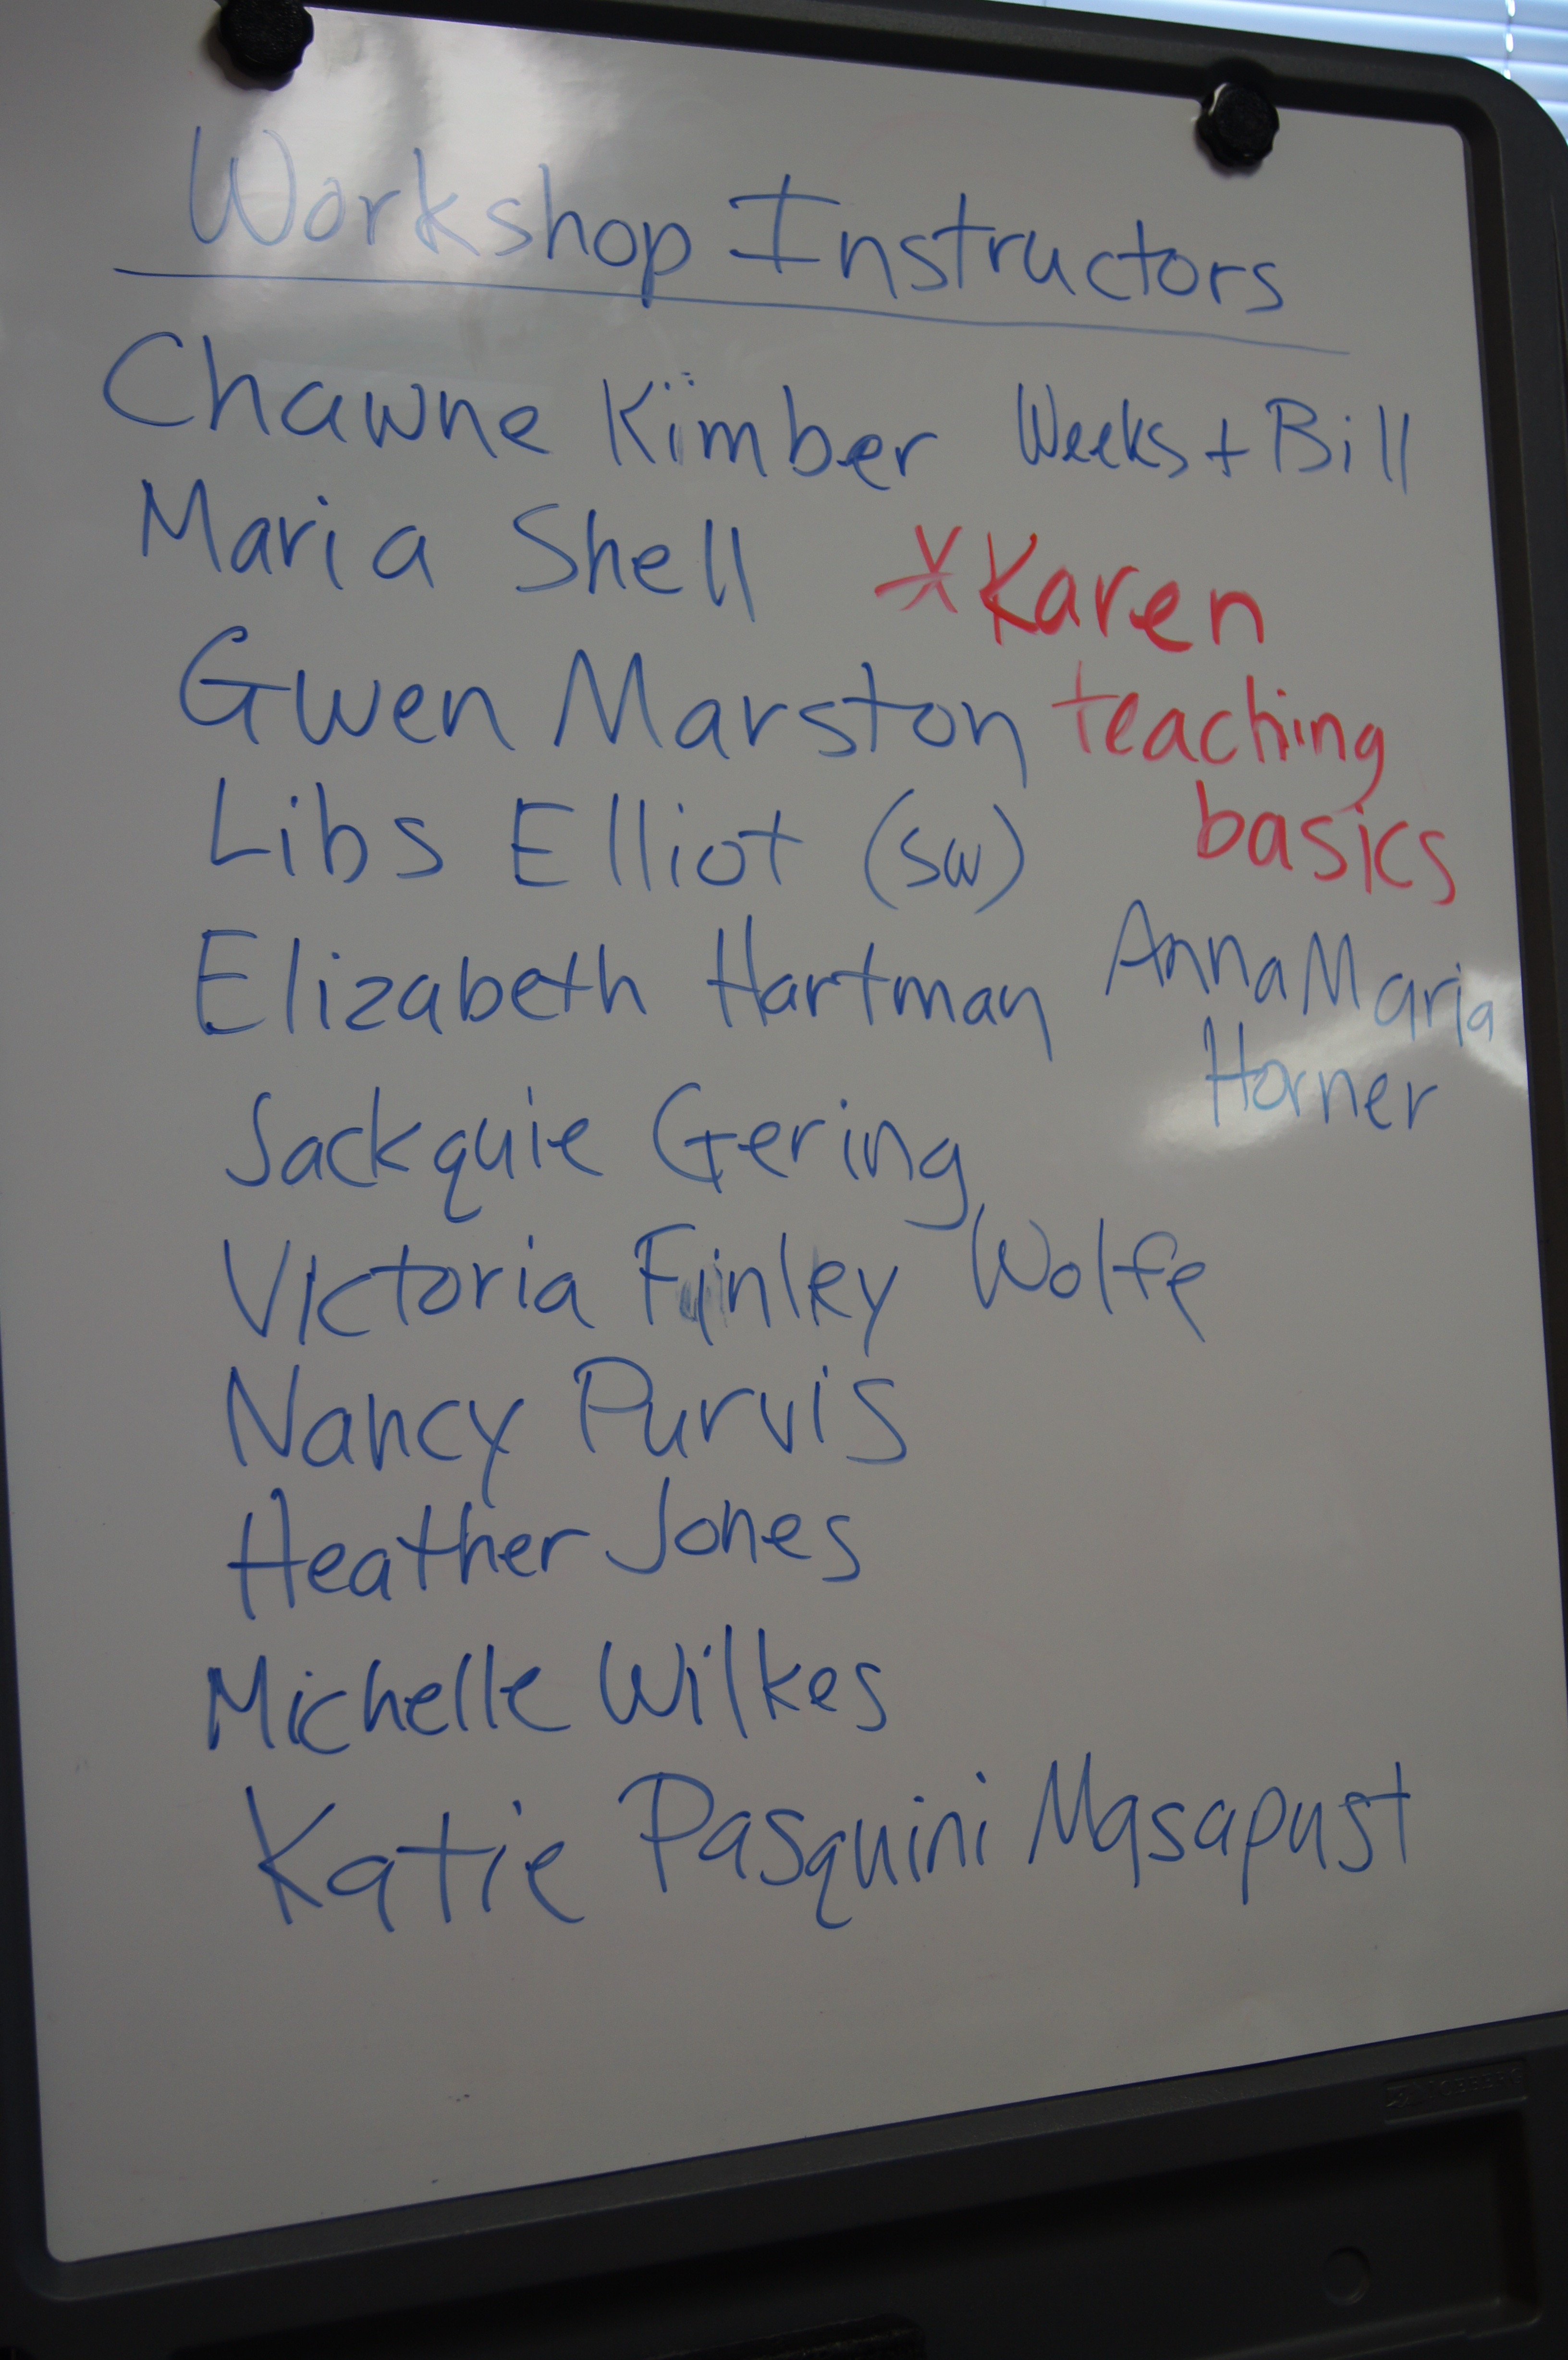 Workshop Instructors
Chawne Kimber Weeks + Bill
Maria Shell
*Karen
Gwen Marston
teaching
Libs Elliot (sw)
basics
Elizabeth Hartman
Anna Maria
Horner
Jackquie Gering
Victoria Finley Wolfe
Nancy Purvis
Heather Jones
Michelle Wilkes
Katie Pasquini Masapust
ICEBERG